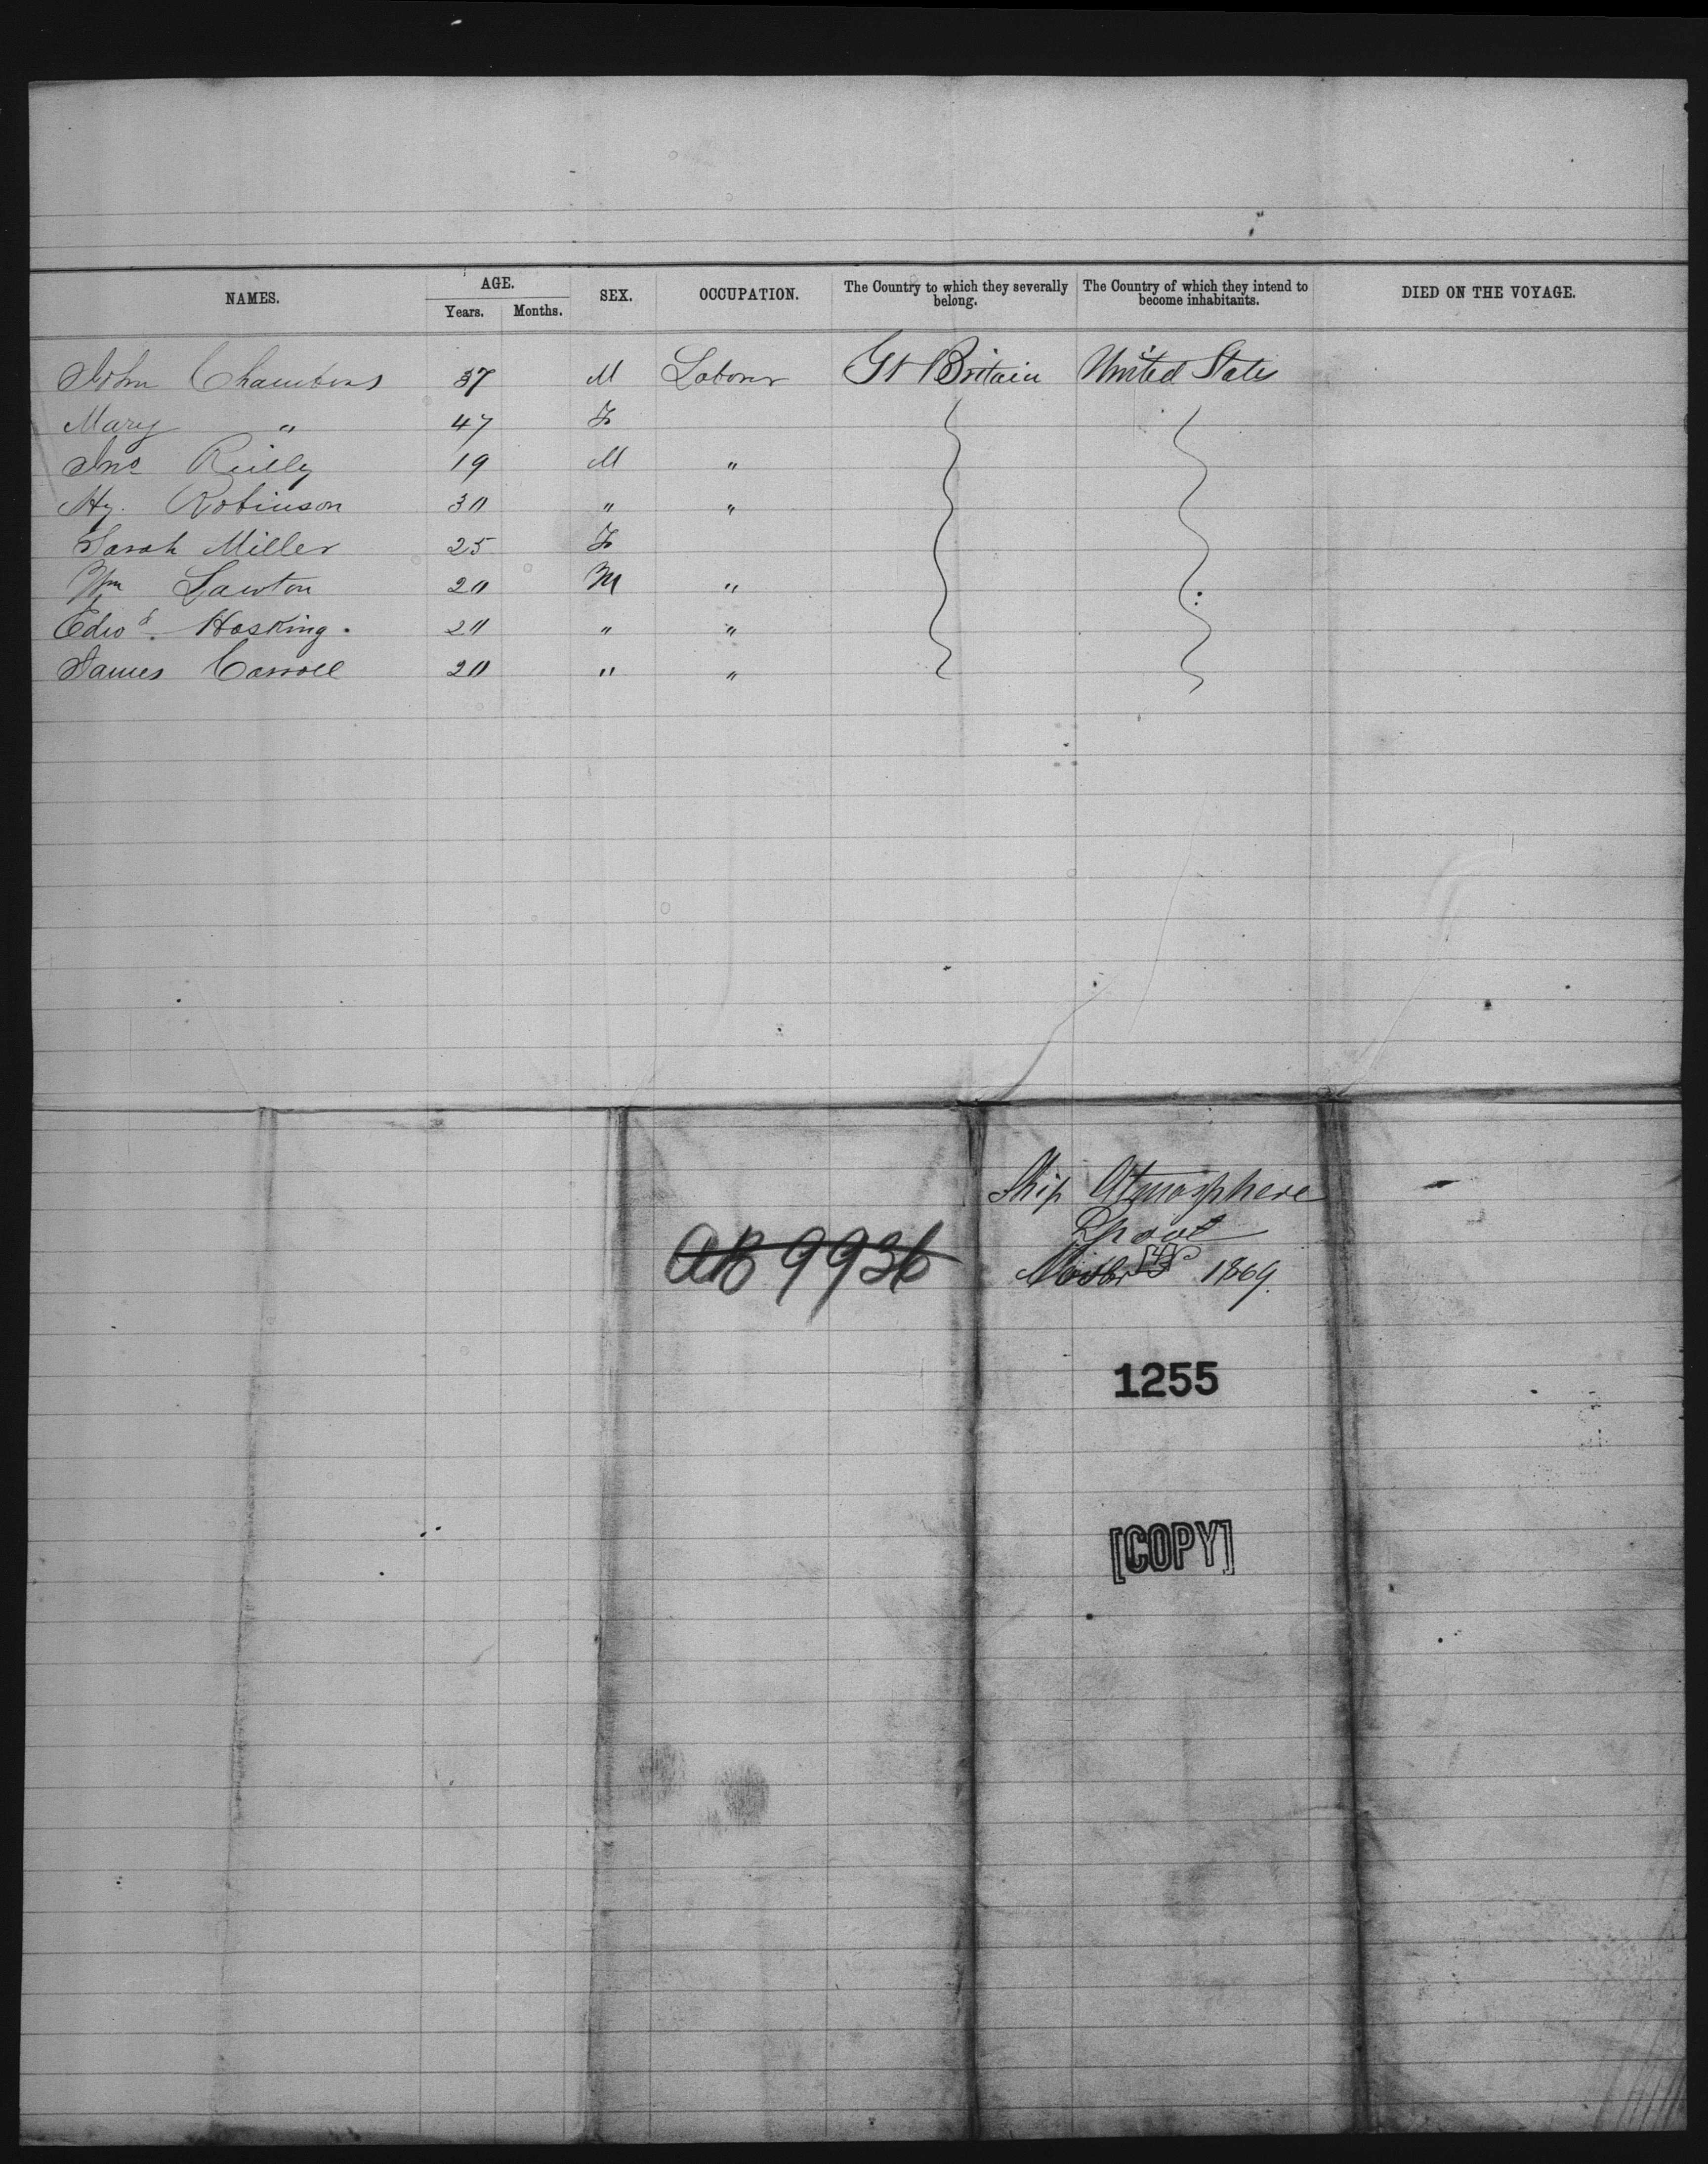 NAMES. AGE. Years. Months. SEX. OCCUPATION. The Country to which they severally belong. The Country of which they intend to become inhabitants. DIED ON THE VOYAGE.
John Chambers 37 M Laborer Gt Britain United States
Mary " 47 F
Jno Reilly 19 M "
Hy. Robinson 30 " "
Sarah Miller 25 F
Wm Lawton 20 M "
Edwd. Hosking. 20 " "
James Carroll 20 " "
Ship Atmosphere
Lpool
AB 9936
1869.
1255
[COPY]